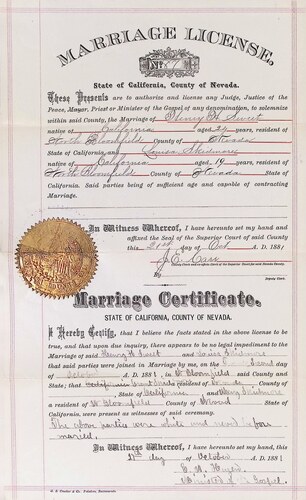 MARRIAGE LICENSE,
State of California, County of Nevada.
These Presents are to authorize and license any Judge, Justice of the
Peace, Mayor, Priest or Minister of the Gospel of any denomination, to solemnize
within said County, the Marriage of Henry H Sweet
native of California aged 24 years, resident of
North Bloomfield County of Nevada
State of California, and Louisa Skidmore
native of California aged 19 years, resident of
North Bloomfield County of Nevada State of
California. Said parties being of sufficient age and capable of contracting
Marriage.
In Witness Whereof, I have hereunto set my hand and
affixed the Seal of the Superior Court of said County
this 21st day of Oct A.D. 188
J. E. Carr
By
Deputy Clerk
Marriage Certificate.
STATE OF CALIFORNIA, COUNTY OF NEVADA.
I Hereby Certify, that I believe the facts stated in the above license to
be true, and that upon due inquiry, there appears to be no legal impediment to the
Marriage of said Henry H Sweet and Louisa Skidmore
that said parties were joined in Marriage by me, on the
day of October A.D. 188 in N Bloomfield said County and
State; that a resident of
State of California and Mary Skidmore
a resident of N Bloomfield County of Nevada State of
California, were present as witnesses of said ceremony.
The above parties were white and never before
married.
In Witness Whereof, I have hereunto set my hand, this
day of October A.D. 188
Minister of the Gospel